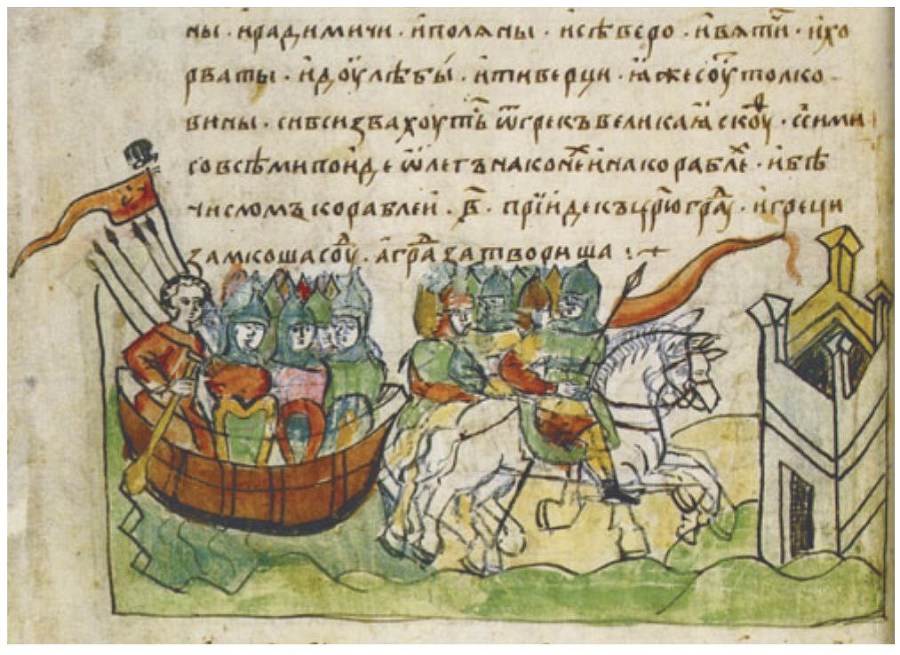 ны · ирадимичи · иполѧны · исѣверо · ивѧти · ихо
рваты · идоулѣбы · итиверци · ꙗжесоу толко
вины · сивсизвахоуть ѿгрекъ великаꙗ скоуⷴ · ссими
совсѣмипоиде ѿлегъ наконеⷯ инакораблеⷯ · ибѣ
числомъ кораблеи · в҃ · прїидекъцр҃юграⷣ · игреци
замкошасоуⷣ · аграⷣ затвориша :